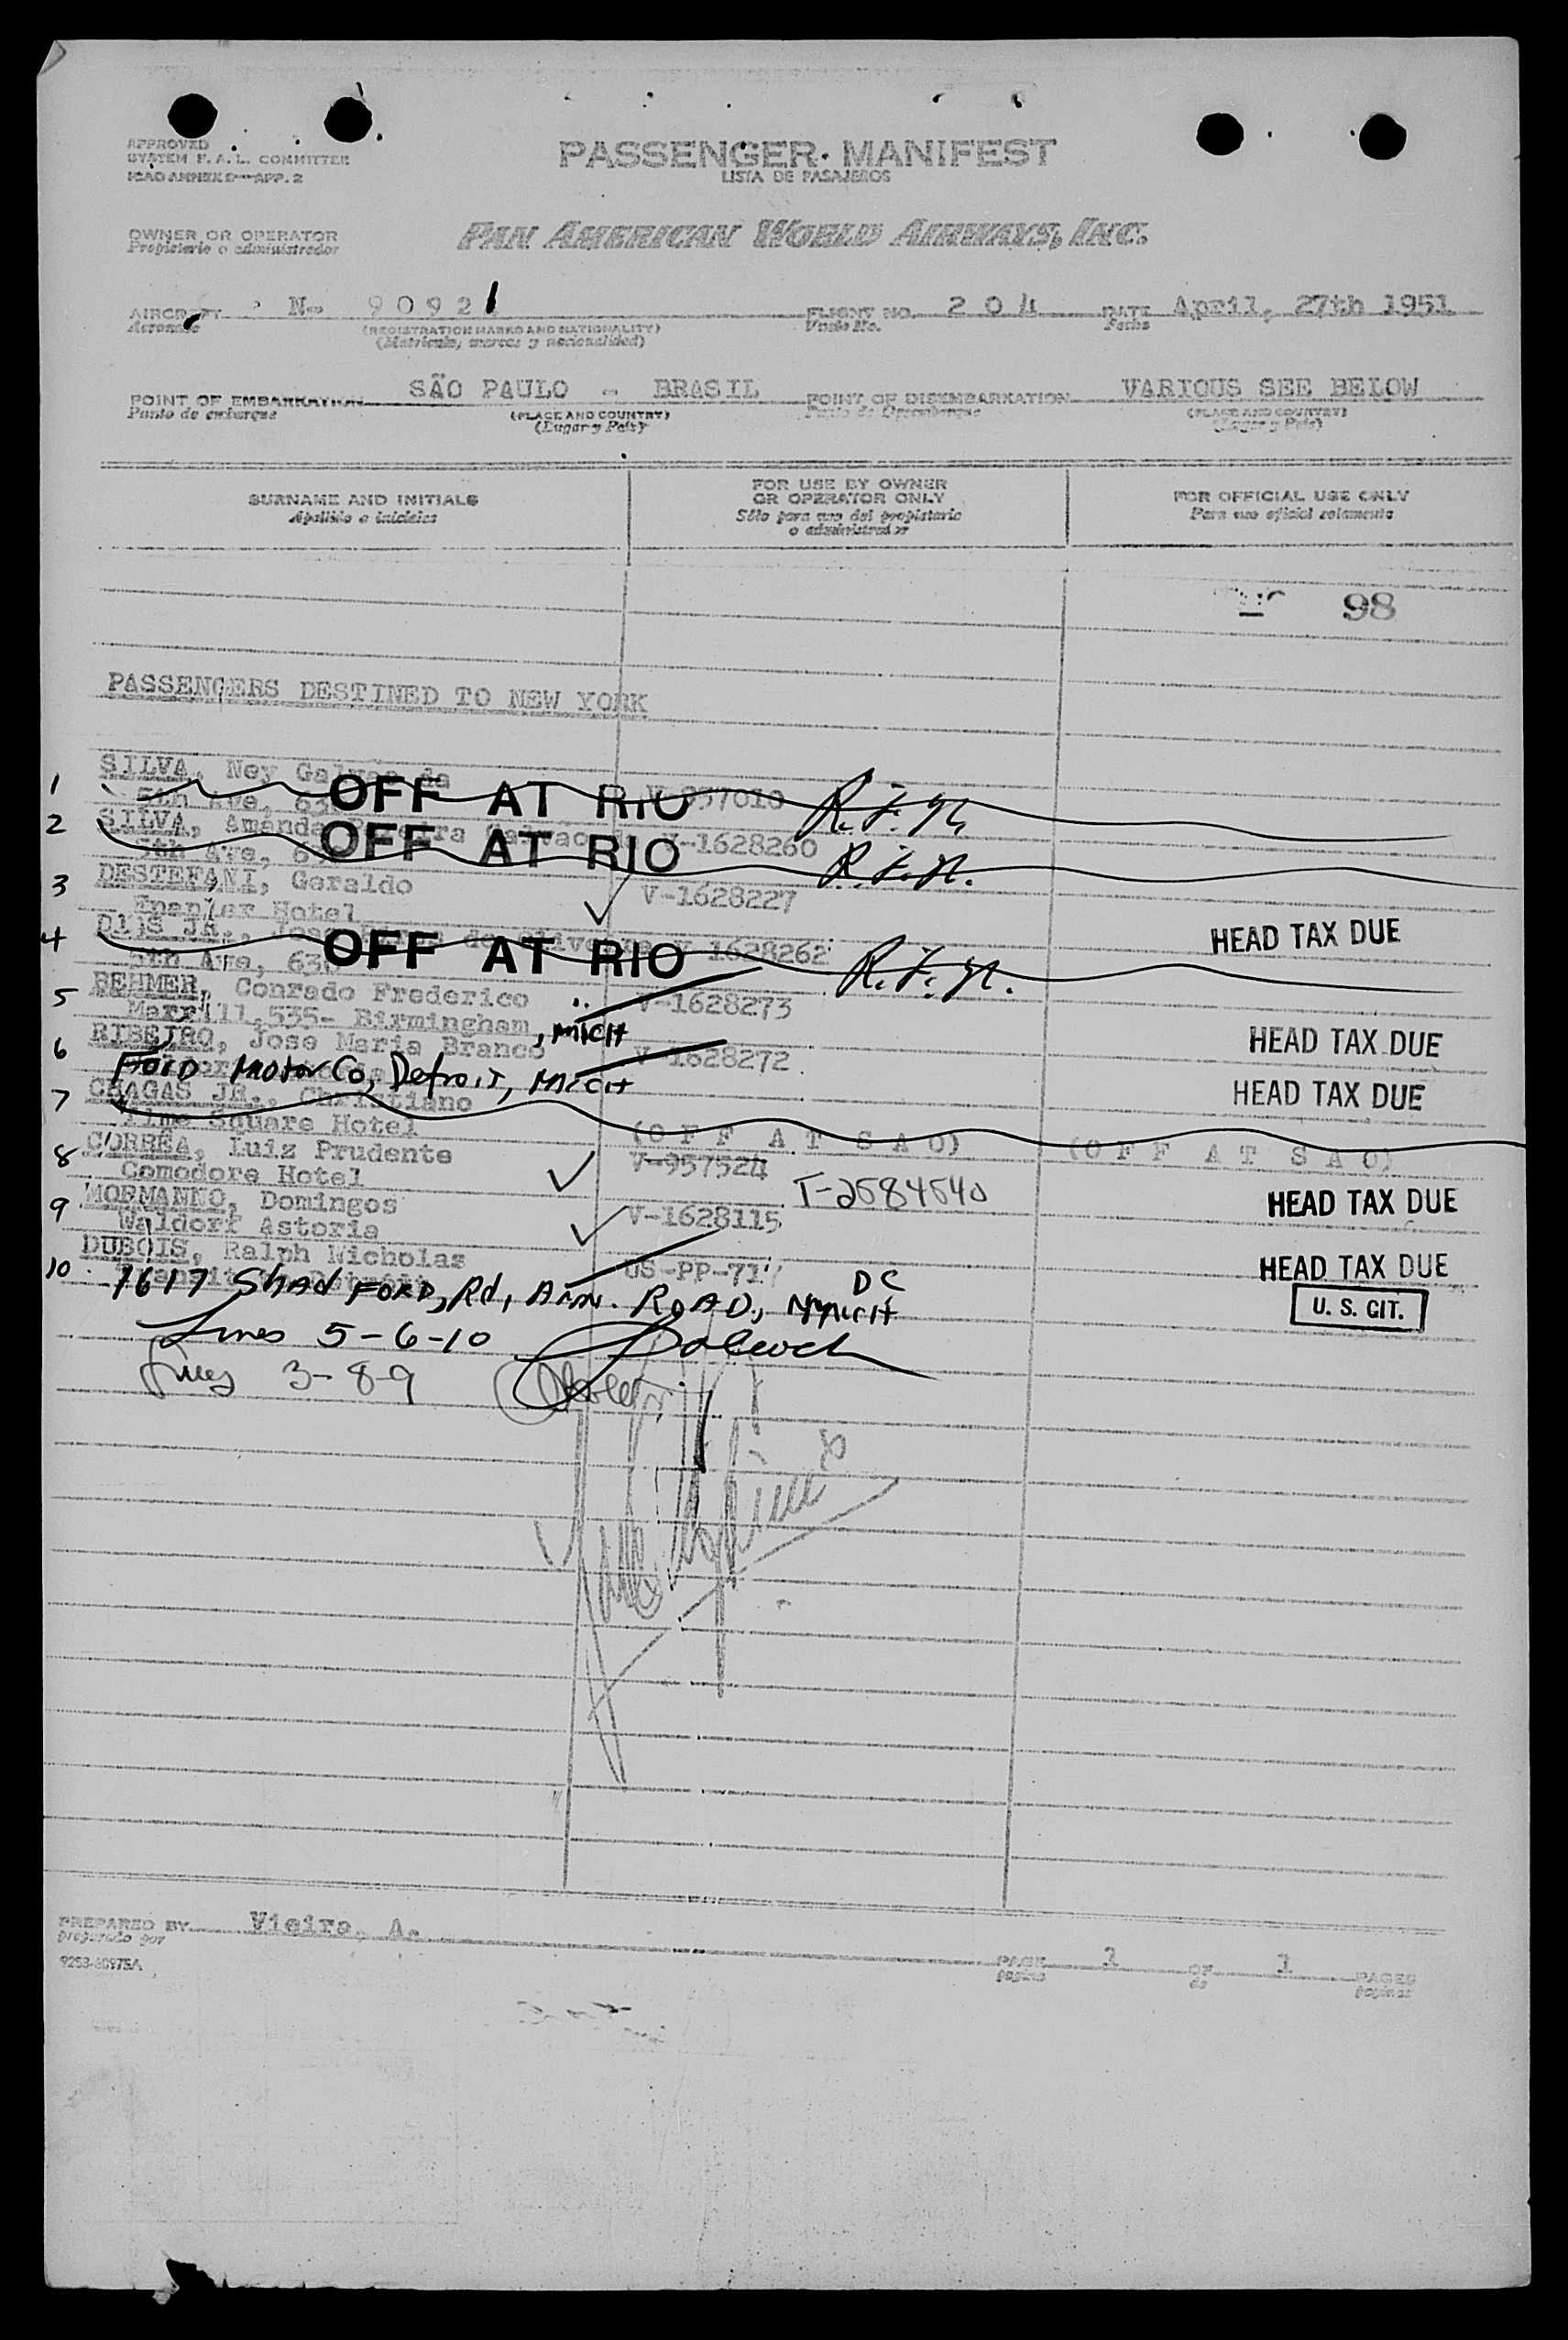 APPROVED
SYSTEM F. A. L. COMMITTEE
ICAO ANNEX 9—APP. 2
PASSENGER MANIFEST
LISTA DE PASAJEROS
OWNER OR OPERATOR
Propietario o administrador
PAN AMERICAN WORLD AIRWAYS, INC.
AIRCRAFT N- 90921 FLIGHT NO. 204 DATE April, 27th 1951
Aeronave (REGISTRATION MARKS AND NATIONALITY) Vuelo No. Fecha
(Matricula, marcas y nacionalidad)
POINT OF EMBARKATION SÃO PAULO - BRASIL POINT OF DISEMBARKATION VARIOUS SEE BELOW
Punto de embarque (PLACE AND COUNTRY) Punto de Desembarque (PLACE AND COUNTRY)
(Lugar y País) (Lugar y País)
SURNAME AND INITIALS FOR USE BY OWNER OR OPERATOR ONLY FOR OFFICIAL USE ONLY
Apellido e iniciales Sólo para uso del propietario o administrador Para uso oficial solamente
98
PASSENGERS DESTINED TO NEW YORK
1 SILVA, Ney Galvao da V-957010 R.F.N.
5th Ave, 630 OFF AT RIO
2 SILVA, Amanda Galvao V-1628260 R.F.N.
5th Ave, 630 OFF AT RIO
3 DESTEFANI, Geraldo V-1628227
Hotel HEAD TAX DUE
4 DIAS JR., Jose de Oliveira V-1628262 R.F.N.
5th Ave, 630 OFF AT RIO
5 BEHMER, Conrado Frederico V-1628273
Merrill, 535- Birmingham, MICH HEAD TAX DUE
6 RIBEIRO, Jose Maria Branco V-1628272
FORD Motor Co, Detroit, MICH HEAD TAX DUE
7 CHAGAS JR., Christiano
Time Square Hotel (OFF AT SAO) (OFF AT SAO)
8 CORRÊA, Luiz Prudente V-957524
Comodore Hotel T-2684640 HEAD TAX DUE
9 MORMANNO, Domingos V-1628115
Waldorf Astoria HEAD TAX DUE
10 DUBOIS, Ralph Nicholas US-PP-71
1617 SHADFORD, Rd, Ann. ROAD., MICH DC U. S. CIT.
Lines 5-6-10
Lines 3-8-9
PREPARED BY Vieira, A.
preparado por
PAGE 1 OF 1 PAGES
pagina de paginas
9253-30975A